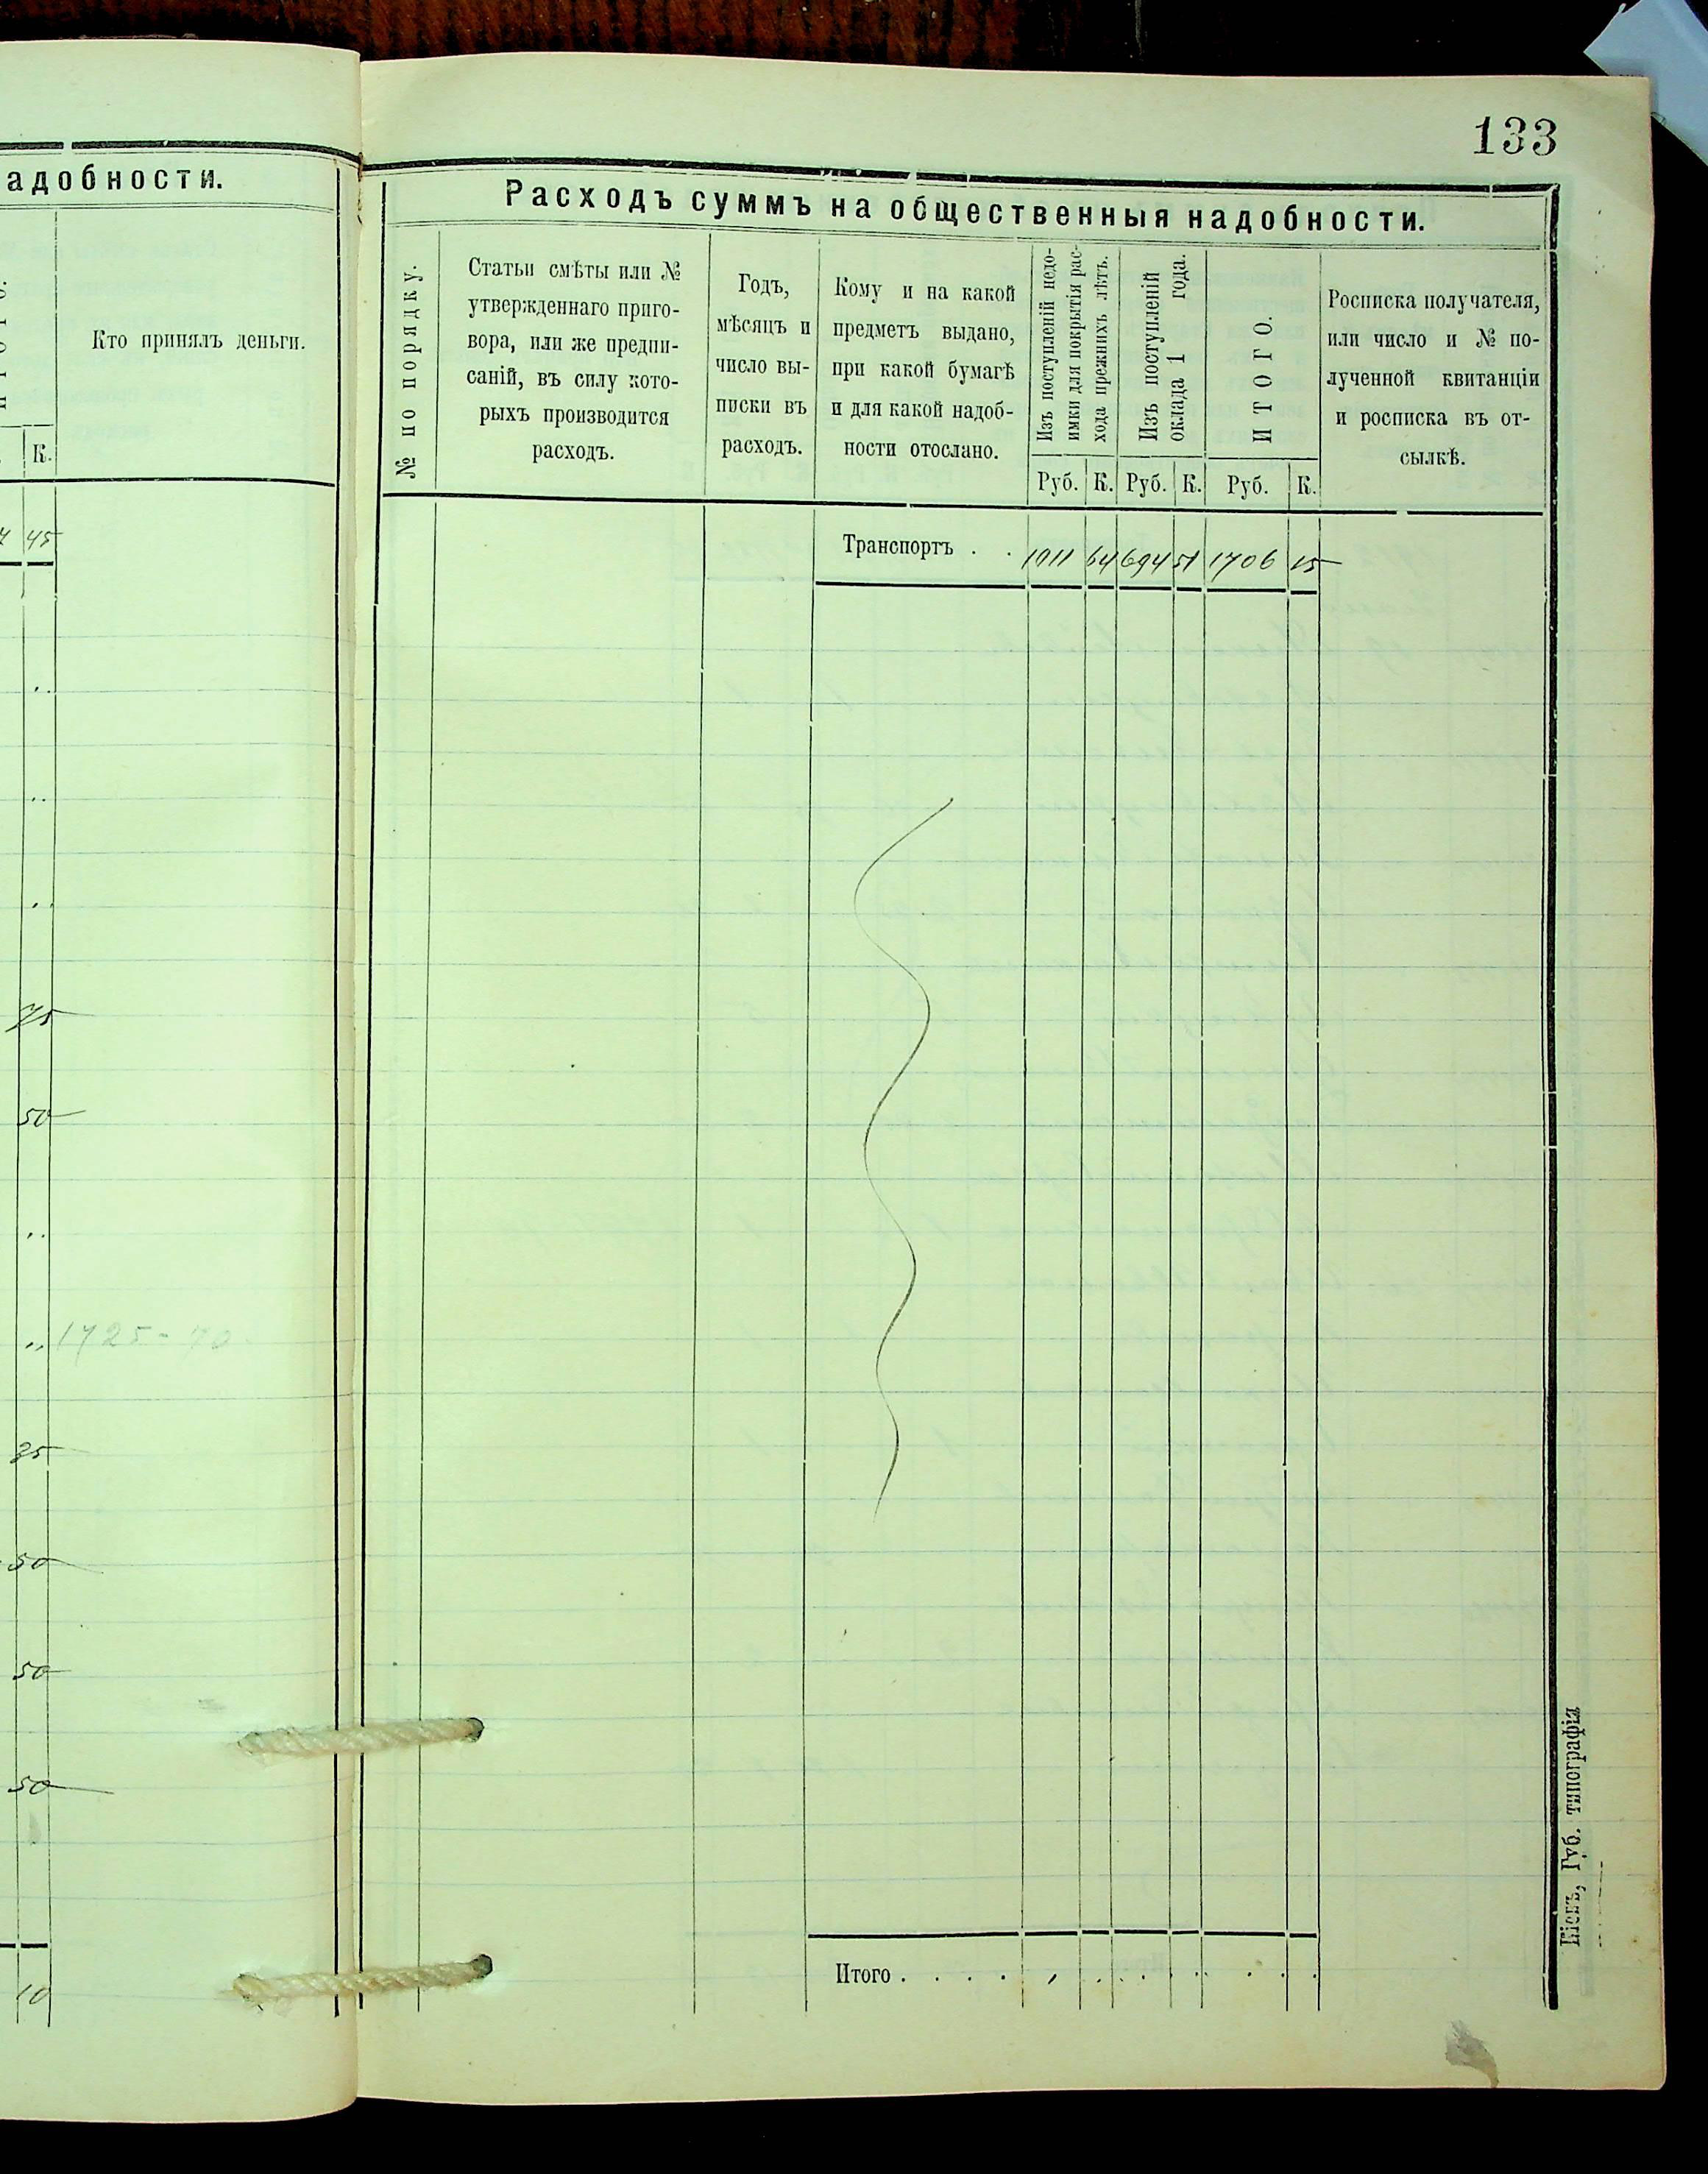 133
адобности.
Кто принялъ деньги.
К.
45
75
50
1725-70
35
50
50
50
10
Расходъ суммъ на общественныя надобности.
№ по порядку.
Статьи смѣты или №
утвержденнаго приго-
вора, или же предпи-
саній, въ силу кото-
рыхъ производится
расходъ.
Годъ,
мѣсяцъ и
число вы-
писки въ
расходъ.
Кому и на какой
предметъ выдано,
при какой бумагѣ
и для какой надоб-
ности отослано.
Изъ поступленій недо-
имки для покрытія рас-
хода прежнихъ лѣтъ.
Изъ поступленій
оклада 1 года.
ИТОГО.
Росписка получателя,
или число и № по-
лученной квитанціи
и росписка въ от-
сылкѣ.
Руб. К. Руб. К. Руб. К.
Транспортъ . . 1011 64 694 51 1706 15
Итого . . . .
Кіевъ, Губ. типографія